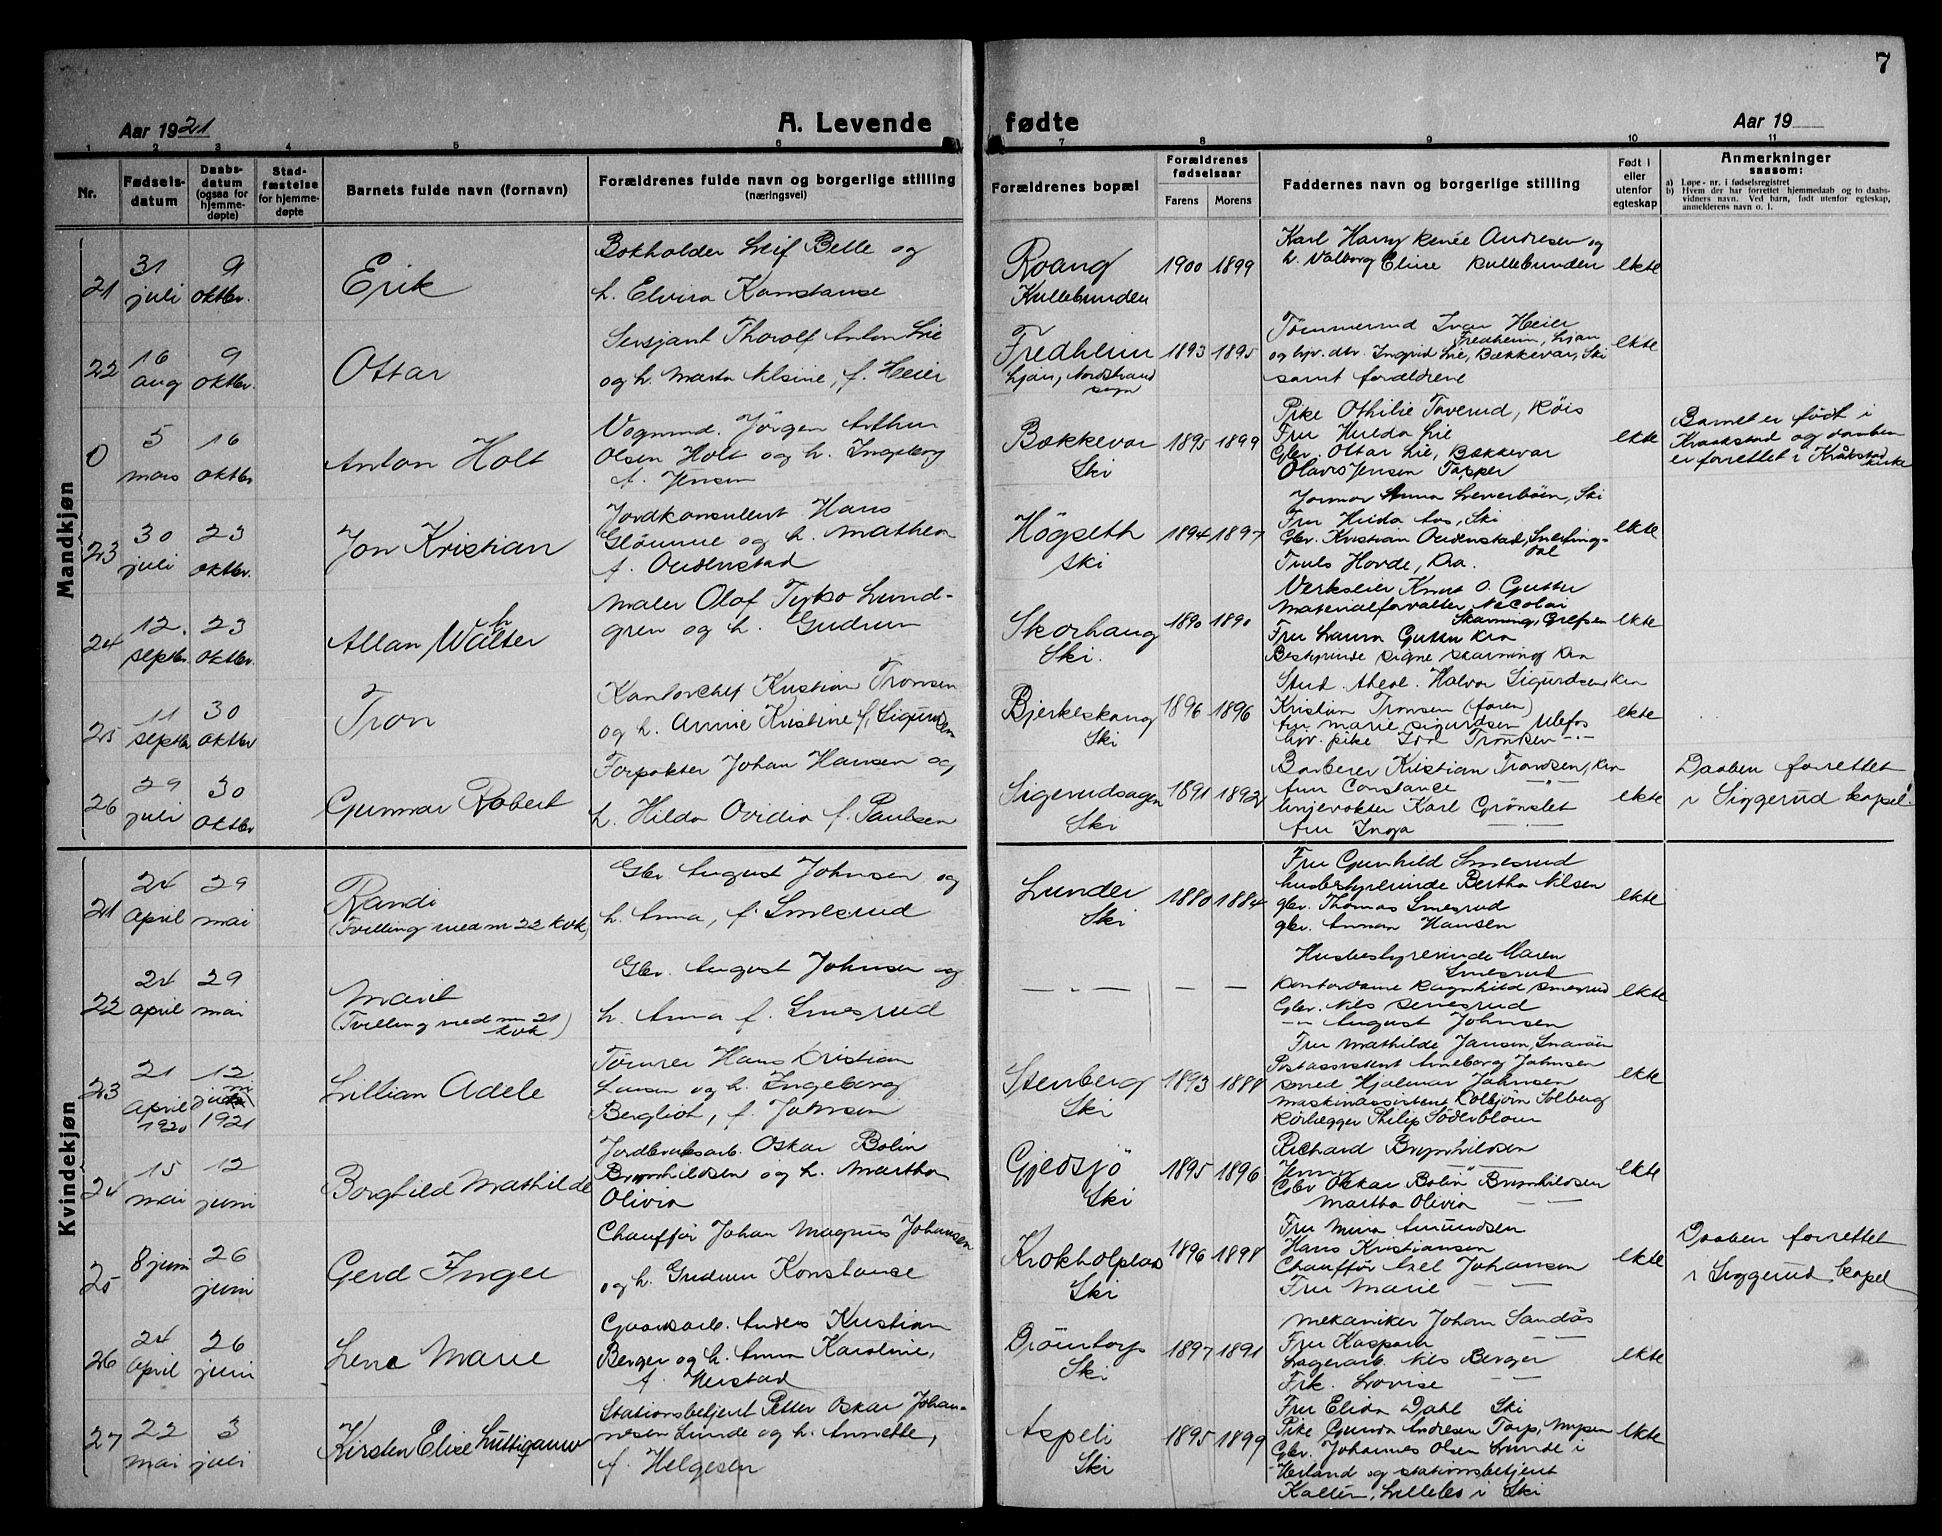 7
Aar 1921
A. Levende
fødte
Aar 19
1 2 3 4 5 6 7 8 9 10 11
Nr.
Fødselsdatum
Daabsdatum (ogsaa for hjemmedøpte)
Stadfæstelse for hjemmedøpte
Barnets fulde navn (fornavn)
Forældrenes fulde navn og borgerlige stilling (næringsvei)
Forældrenes bopæl
Forældrenes fødselsaar
Farens Morens
Faddernes navn og borgerlige stilling
Født i eller utenfor egteskap
Anmerkninger saasom:
a) Løpe-nr. i fødselsregistret
b) Hvem der har forrettet hjemmedaab og to daabsvidners navn. Ved barn, født utenfor egteskap, anmelderens navn o. l.
Mandkjøn
21
31 juli
9 oktbr.
Erik
Bokholder Leif Belle og
h. Elvira Konstanse
Roang
Kullebunden
1900 1899
Karl Harry Renée Andresen og
h. Valborg Eline Kullebunden
ekte
22
16 aug
9 oktbr.
Ottar
Sersjant Thorolf Anton Lie
og h. Marta Nilsine, f. Heier
Fredheim
Ljan, Nordstrand sogn
1893 1895
Tømmerud Ivar Heier
Fredheim, Ljan
og hjv. dtr. Ingrid Lie, Bækkevar, Ski
samt foreldrene
ekte
0
5 mars
16 oktbr
Anton Holt
Vognmd. Jørgen Arthur
Olsen Holt og h. Ingeborg
f. Jensen
Bækkevar
Ski
1895 1899
Pike Othilie Taverud, Røis
Fru Hulda Lie
Gbr. Ottar Lie, Bækkevar
Olavs Jensen Tasper
ekte
Barnet er født i
Kraakstad og daaben
er forrettet i Kråkstad
kirke
23
30 juli
23 oktbr.
Jon Kristian
Jordkonsulent Hans
Glømme og h. Mathea
f. Oudenstad
Høgseth
Ski
1894 1897
Jormor Anna Leverbøen, Ski
Fru Hilda Aas, Ski
Gbr. Kristian Oudenstad, Snertingdal
Truls Hovde, Kra.
ekte
24
12. septbr.
23 oktbr.
Allan Walther
Maler Olof Tycko Lundgren
og h. Gudrun
Skorhaug
Ski.
1890 1890
Verkseier Knut O. Guttu
Materialforvalter Nicolai
Skarning, Grefsen
Fru Laura Guttu Kra
Bestyrinde Signe Skarning Kra
ekte
25
11 septbr
30 oktbr
Tron
Kontorchef Kristian Tronsen
og h. Annie Kristine f. Sigurdsen
Bjerkeskaug
Ski
1896 1896
Stud. theol. Halvor Sigurdsen Kra
Kristian Tronsen (faren)
fru Marie Sigurdsen Ulefos
hjv. pike Idol Tronsen —"—
ekte
26
29 juli
30 oktbr
Gunnar Robert
Forpakter Johan Hansen og
h. Hilda Ovidia f. Paulsen
Sigerudsagen
Ski
1891 1892
Barberer Kristian Trondsen, Kra
fru Constance —"—
linjevokter Karl Grønslet
fru Inga — —
ekte
Daaben forrettet
i Siggerud kapel.
Kvindekjøn
21
24 april
29 mai
Randi
(Tvilling med nr 22 kvk)
Gbr. August Johnsen og
h. Anna, f. Smesrud
Lunder
Ski
1880 1884
Fru Gunhild Smesrud
husbestyrerinde Bertha Nilsen
gbr. Thomas Smesrud
gbr. Annan Hansen
ekte
22
24 april
29 mai
Marit
(Tvilling med nr 21 kvk)
Gbr. August Johnsen og
h. Anna f. Smesrud
— — —
— —
Husbestyrerinde Maren
Smesrud
Kontordame Ragnhild Smesrud
Gbr. Nils Smesrud
—"— August Johnsen
ekte
23
21 april 1920
12 juni 1921
Lillian Adele
Tømrer Hans Kristian
Jansen og h. Ingeborg
Bergliot, f. Johnsen
Stenberg
Ski
1893 1888
Fru Mathilde Jansen, Snarøen
Postassistent Anneborg Johnsen
smed Hjalmar Johnsen
maskinassistent Kolbjørn Solberg
Rørlægger Philip Söderblom
ekte
24
15 mai
12 juni
Borghild Mathilde
Jordbruksarb. Oskar Bolin
Brynhildsen og h. Martha
Olivia
Gjedsjö
Ski
1895 1896
Richard Brynhildsen
Jenny —"—
Gbr Oskar Bolin Brynhildsen
Martha Olivia — —
ekte
25
8 juni
26 juni
Gerd Inger
Chauffør Johan Magnus Johansen
og h. Gudrun Konstanse
Krokholplas
Ski
1896 1898
Fru Mina Amundsen
Hans Kristiansen
Chauffør Axel Johansen
Fru Marie — —
ekte
Daaben forrettet
i Siggerud kapel
26
24 april
26 juni
Lene Marie
Gaardsarb. Anders Kristian
Berger og h. Anna Karoline,
f. Herstad
Drömtorp
Ski
1897 1891
Mekaniker Johan Sandås
Fru Kaspara — —
Lagerarb. Nils Berger
Frk. Lovise — —
ekte
27
22 mai
3 juli
Kirsten Elise
Stationsbetjent Petter Oskar Johannesen
Lunde og h. Annette,
f. Helgesen
Aspeli
Ski
1895 1899
Fru Elida Dahl Ski
Pike Gunda Andresen Torp, Mysen
Gbr. Johannes Olsen Lunde i
Herland og stationsbetjent
Kaltén, Lilleløs i Ski
ekte